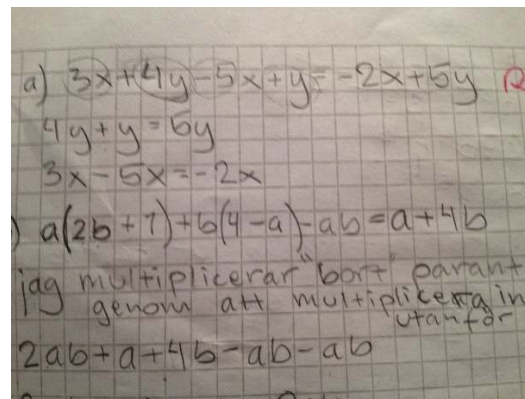 a) 3x+4y-5x+y=-2x+5y R
4y+y=5y
3x-5x=-2x
) a(2b+1)+b(4-a)-ab=a+4b
jag multiplicerar "bort" parant
genom att multiplicera in
utanför
2ab+a+4b-ab-ab